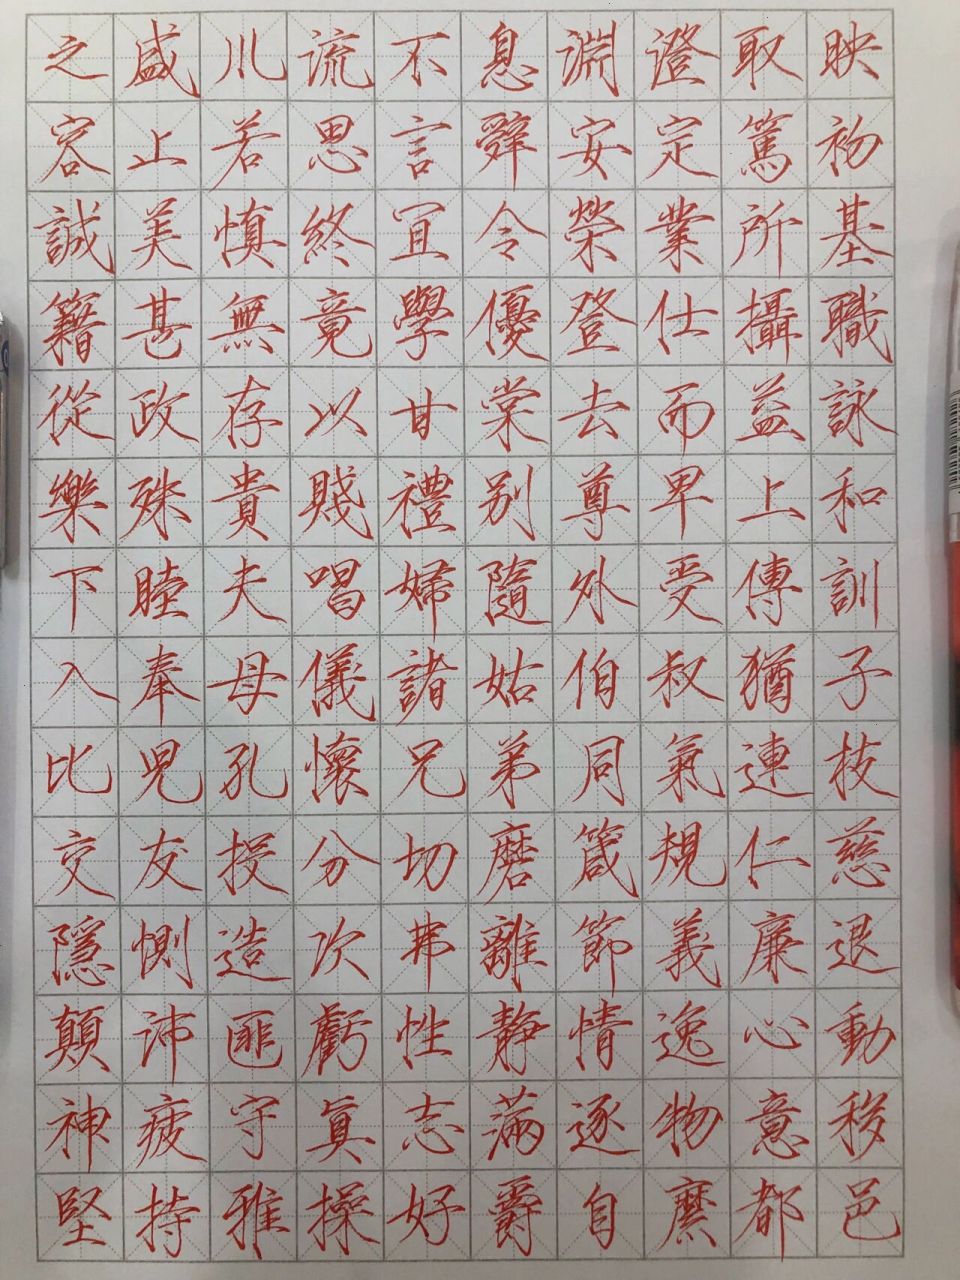 之盛川流不息淵澄取映
容止若思言辭安定篤初
誠美慎終宜令榮業所基
籍甚無竟學優登仕攝職
從政存以甘棠去而益詠
樂殊貴賤禮别尊卑上和
下睦夫唱婦隨外受傅訓
入奉母儀諸姑伯叔猶子
比兒孔懷兄弟同氣連枝
交友投分切磨箴規仁慈
隱惻造次弗離節義廉退
顛沛匪虧性靜情逸心動
神疲守真志滿逐物意移
堅持雅操好爵自縻都邑